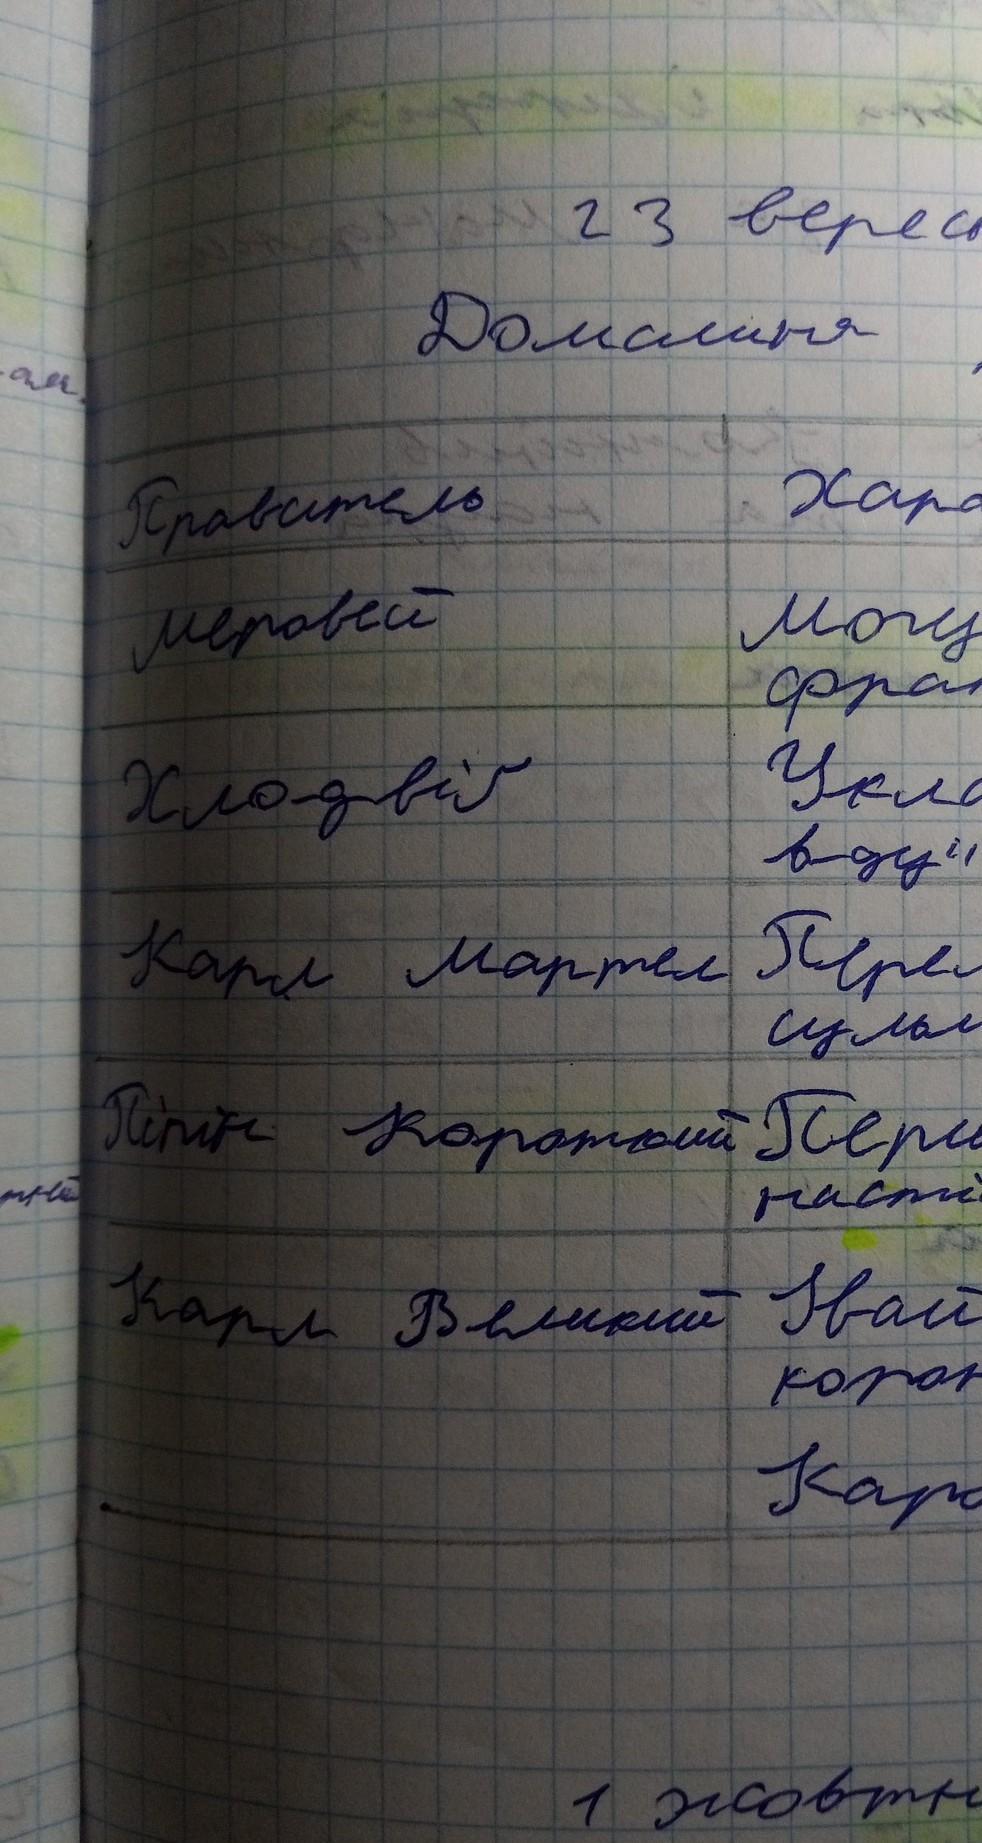 23 вересн
Домашня
Правитель Хара
Меровей Могу
фран
Хлодвіг Укла
вду"
Карл Мартел Перем
сульм
Піпін Короткий Перш
насти
Карл Великий Івай
корон
Каро
1 жовтн